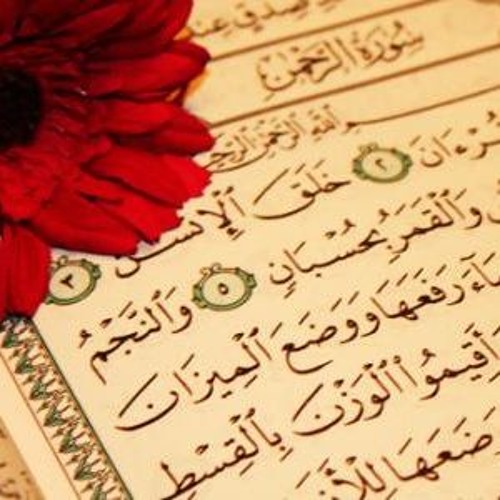 صِدْقٍ عِندَ
سُورَةُ الرَّحْمَٰن
ـمِ ٱللَّهِ ٱلرَّحْمَٰنِ ٱلرَّحِيمِ
ـقُرْءَانَ ٢ خَلَقَ ٱلْإِنسَـٰنَ ٣
وَٱلْقَمَرُ بِحُسْبَانٍ ٥ وَٱلنَّجْمُ
ـمَآءَ رَفَعَهَا وَوَضَعَ ٱلْمِيزَانَ
وَأَقِيمُوا۟ ٱلْوَزْنَ بِٱلْقِسْطِ
وَضَعَهَا لِلْأَنَـ